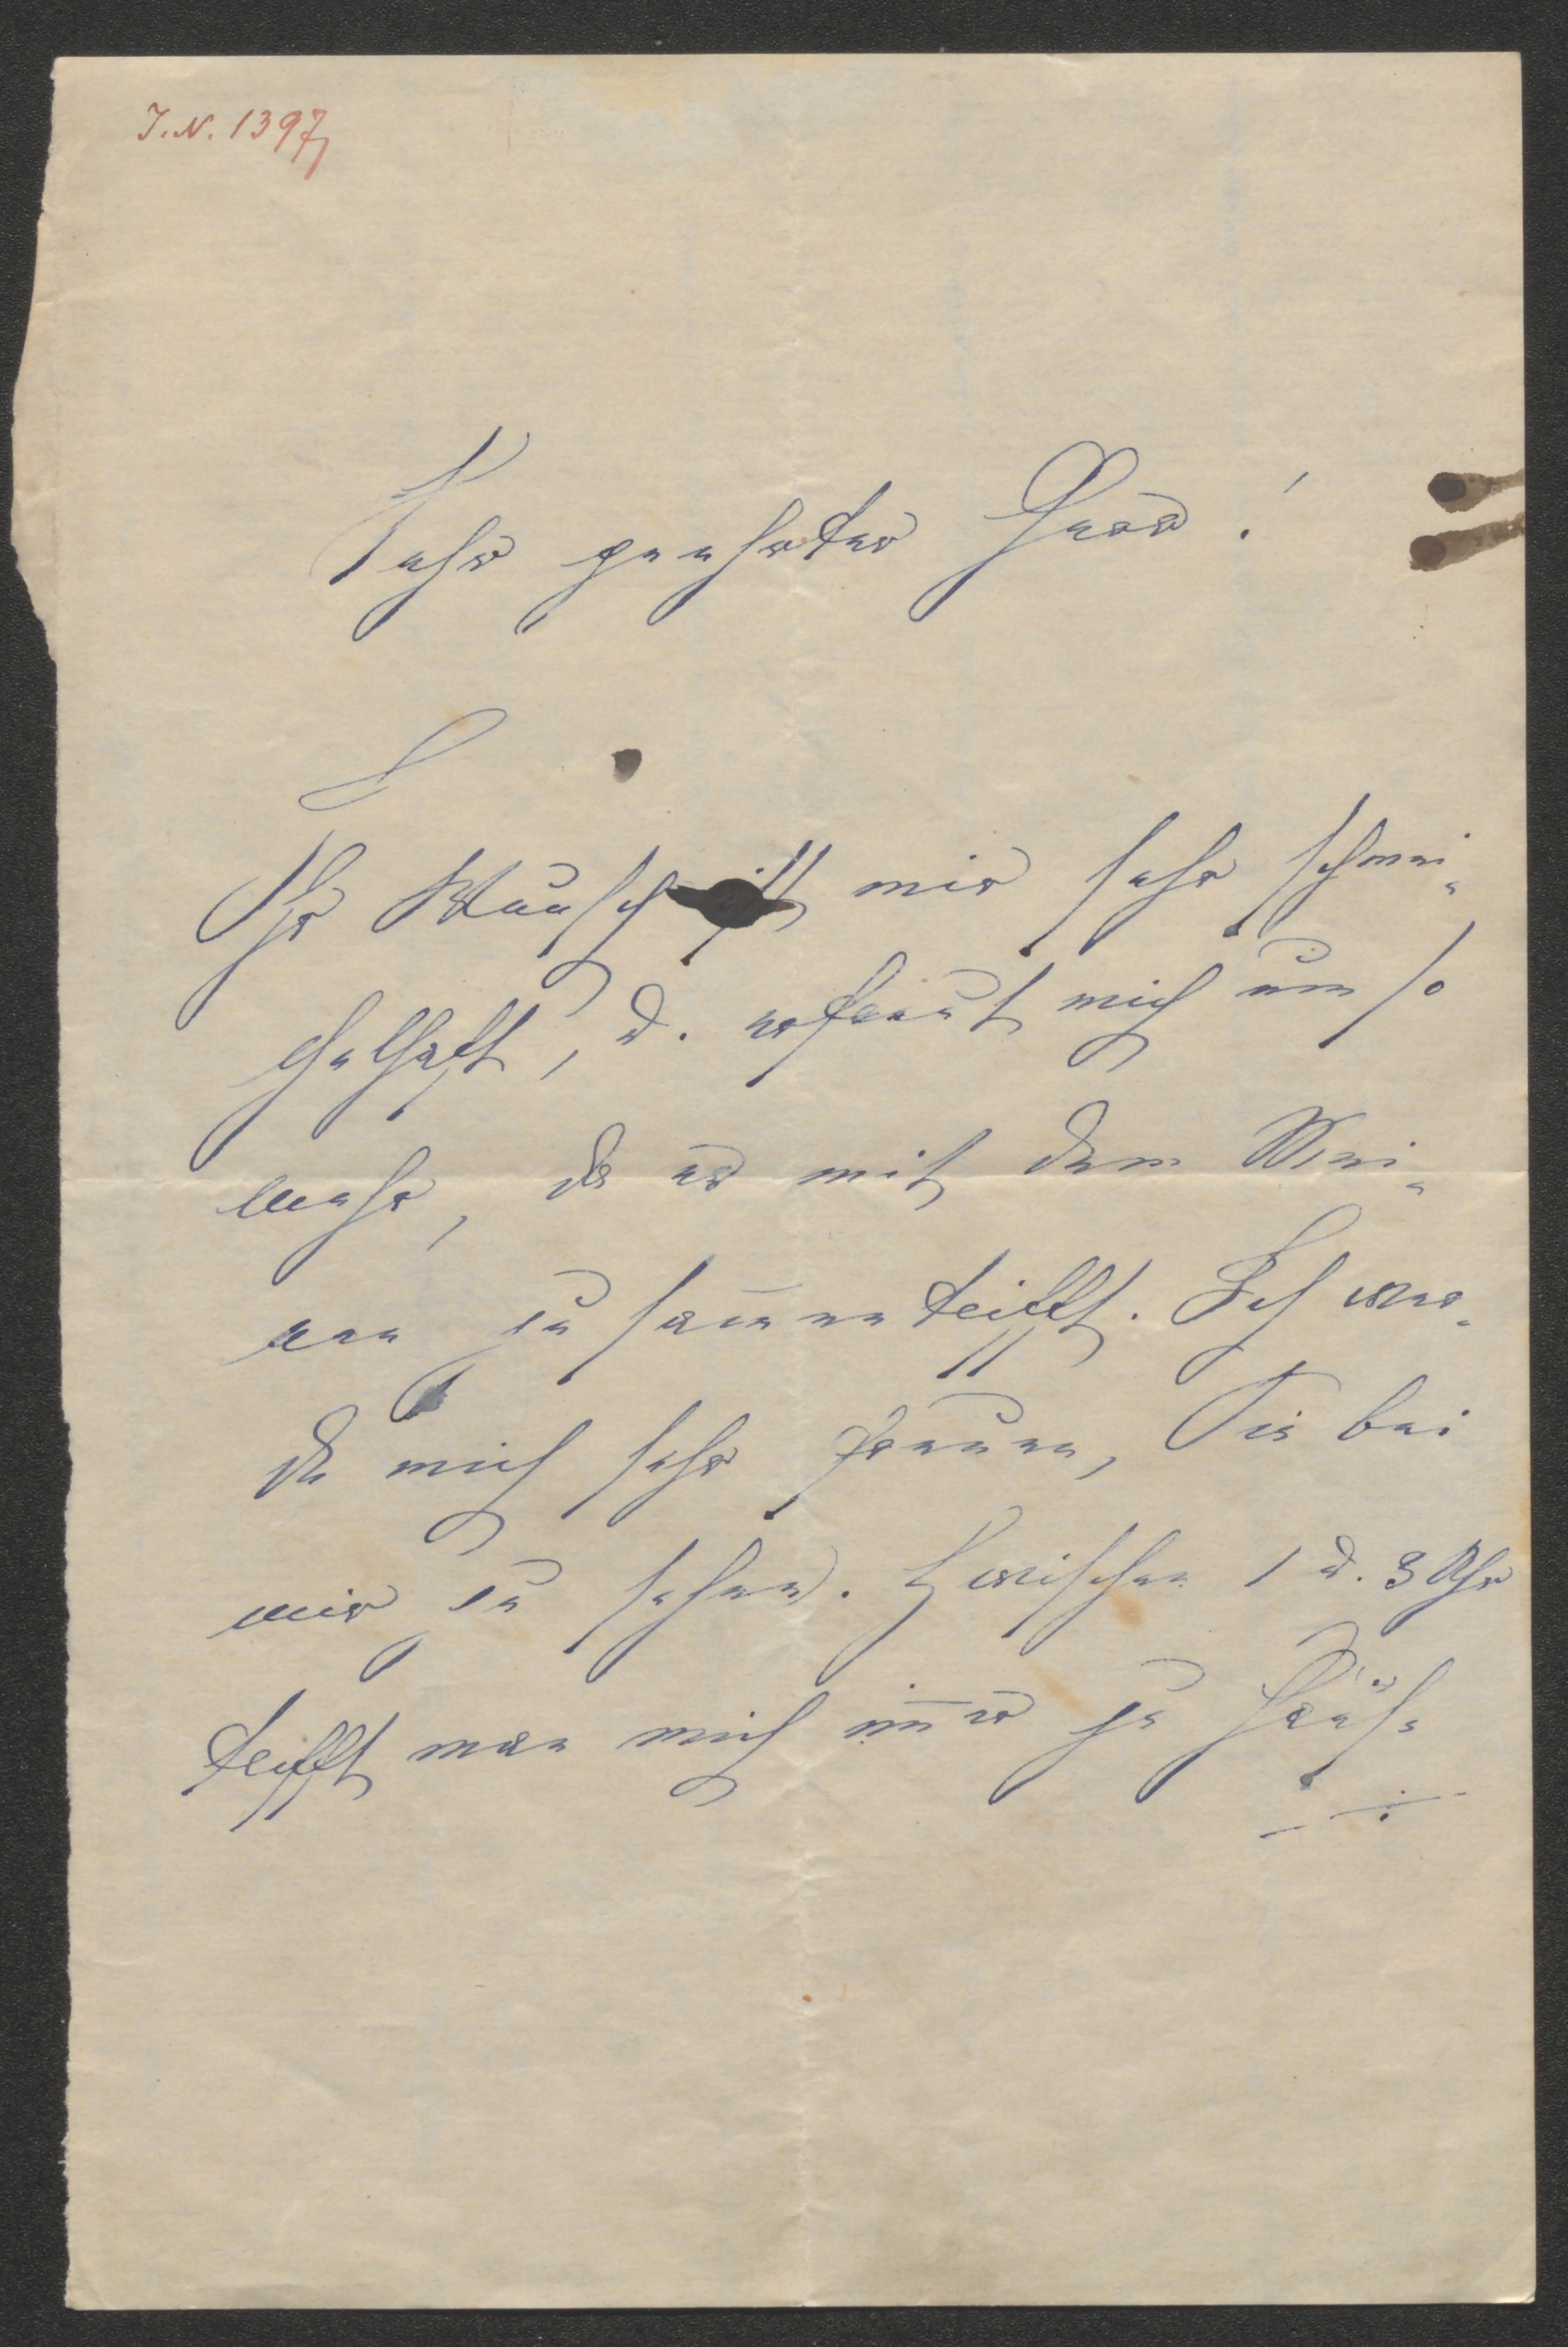 I.N. 1397
Sehr geehrter Herr!
Ihr Wunsch ist mir sehr schmei-
chelhaft, u. erfreut mich um so
mehr, da er mit dem Mei-
nen zusam̅entrifft. Ich wer-
de mich sehr freuen, Sie bei
mir zu sehen. Zwischen 1 u. 3 Uhr
trifft man mich im̅er zu Hause